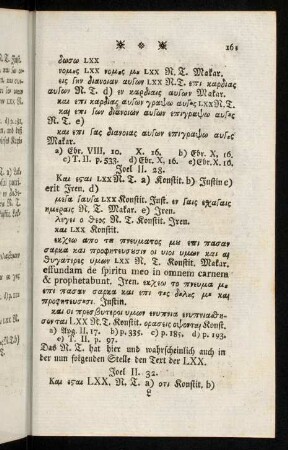 161
δωσω LXX
νομȣς LXX νομȣς μȣ LXX N. T. Makar.
εις την διανοιαν αυτων LXX N. T. επι καρδιας
αυτων N. T. d) εν καρδιαις αυτων Makar.
και επι καρδιας αυτων γραψω αυτȣς LXX N. T.
και επι των διανοιων αυτων επιγραψω αυτȣς
N. T. e)
και επι τας διανοιας αυτων επιγραψω αυτȣς
Makar.
a) Ebr. VIII, 10. X. 16. b) Ebr. X, 16.
c) T. II. p. 533. d) Ebr. X, 16. e) Ebr. X. 16.
Joel II. 28.
Και εσται LXX N. T. a) Konstit. b) Justin c)
erit Iren. d)
μετα ταυτα LXX Konstit. Just. εν ταις εσχαταις
ημεραις N. T. Makar. e) Iren.
λεγει ο Θεος N. T. Konstit. Iren.
και LXX Konstit.
εκχεω απο τȣ πνευματος μȣ επι πασαν
σαρκα και προφητευσȣσιν οι υιοι υμων και αι
θυγατερες υμων LXX N. T. Konstit. Makar.
effundam de spiritu meo in omnem carnem
& prophetabunt. Iren. εκχεω το πνευμα μȣ
επι πασαν σαρκα και επι τȣς δȣλȣς μȣ και
προφητευσȣσι. Justin.
και οι πρεσβυτεροι υμων ενυπνια ενυπνιασθη-
σονται LXX N. T. Konstit. ορασεις οψονται Konst.
a) Apg. II, 17. b) p. 335. c) p. 185. d) p. 193.
e) T. II. p. 97.
Das N. T. hat hier und wahrscheinlich auch in
der nun folgenden Stelle den Text der LXX.
Joel II. 32.
Και εσται LXX. N. T. a) οτι Konstit. b)
L